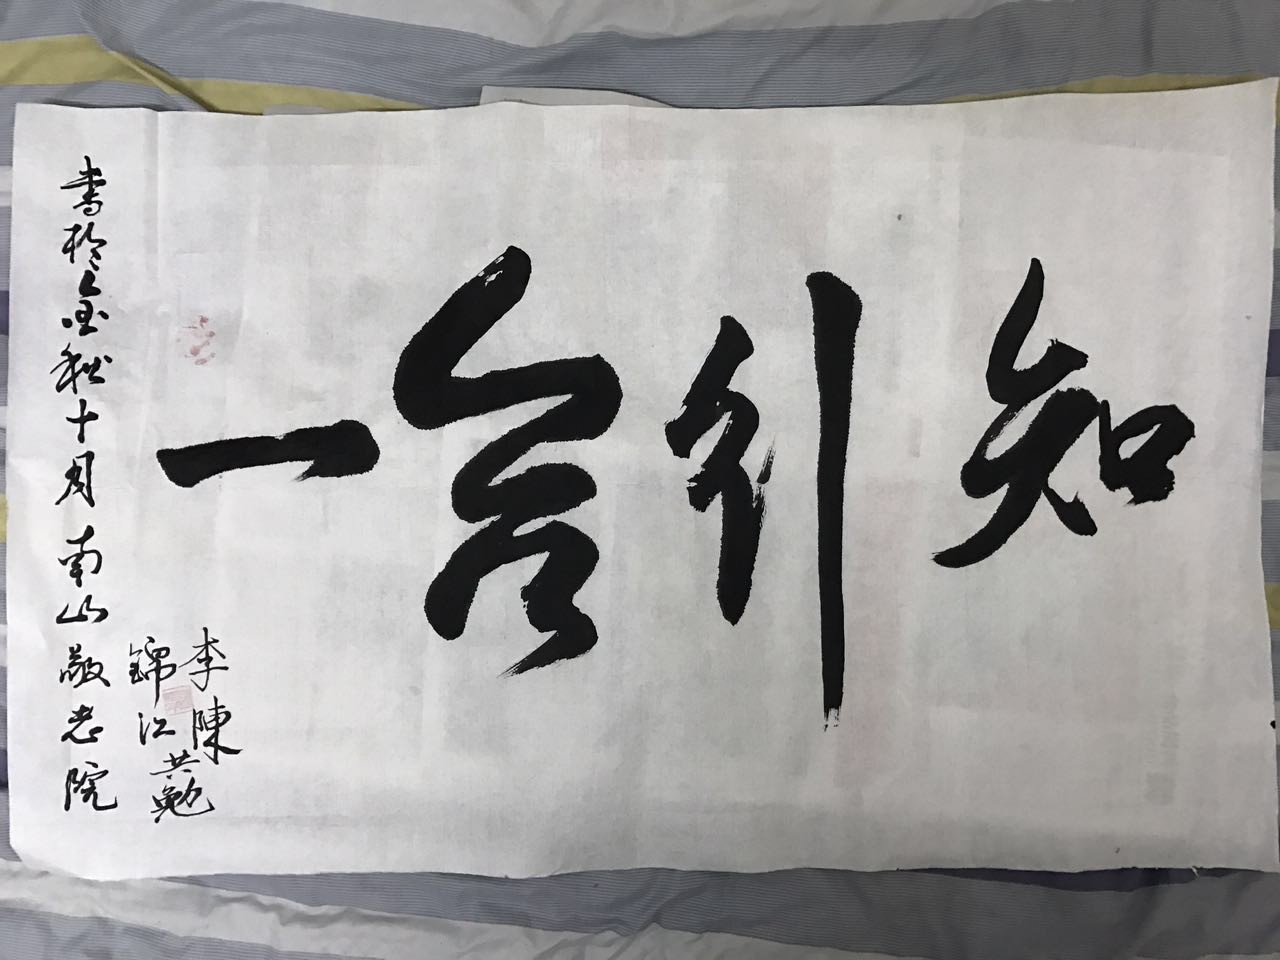 知行合一
李陳
錦江
共勉
書於金秋十月南山敬老院